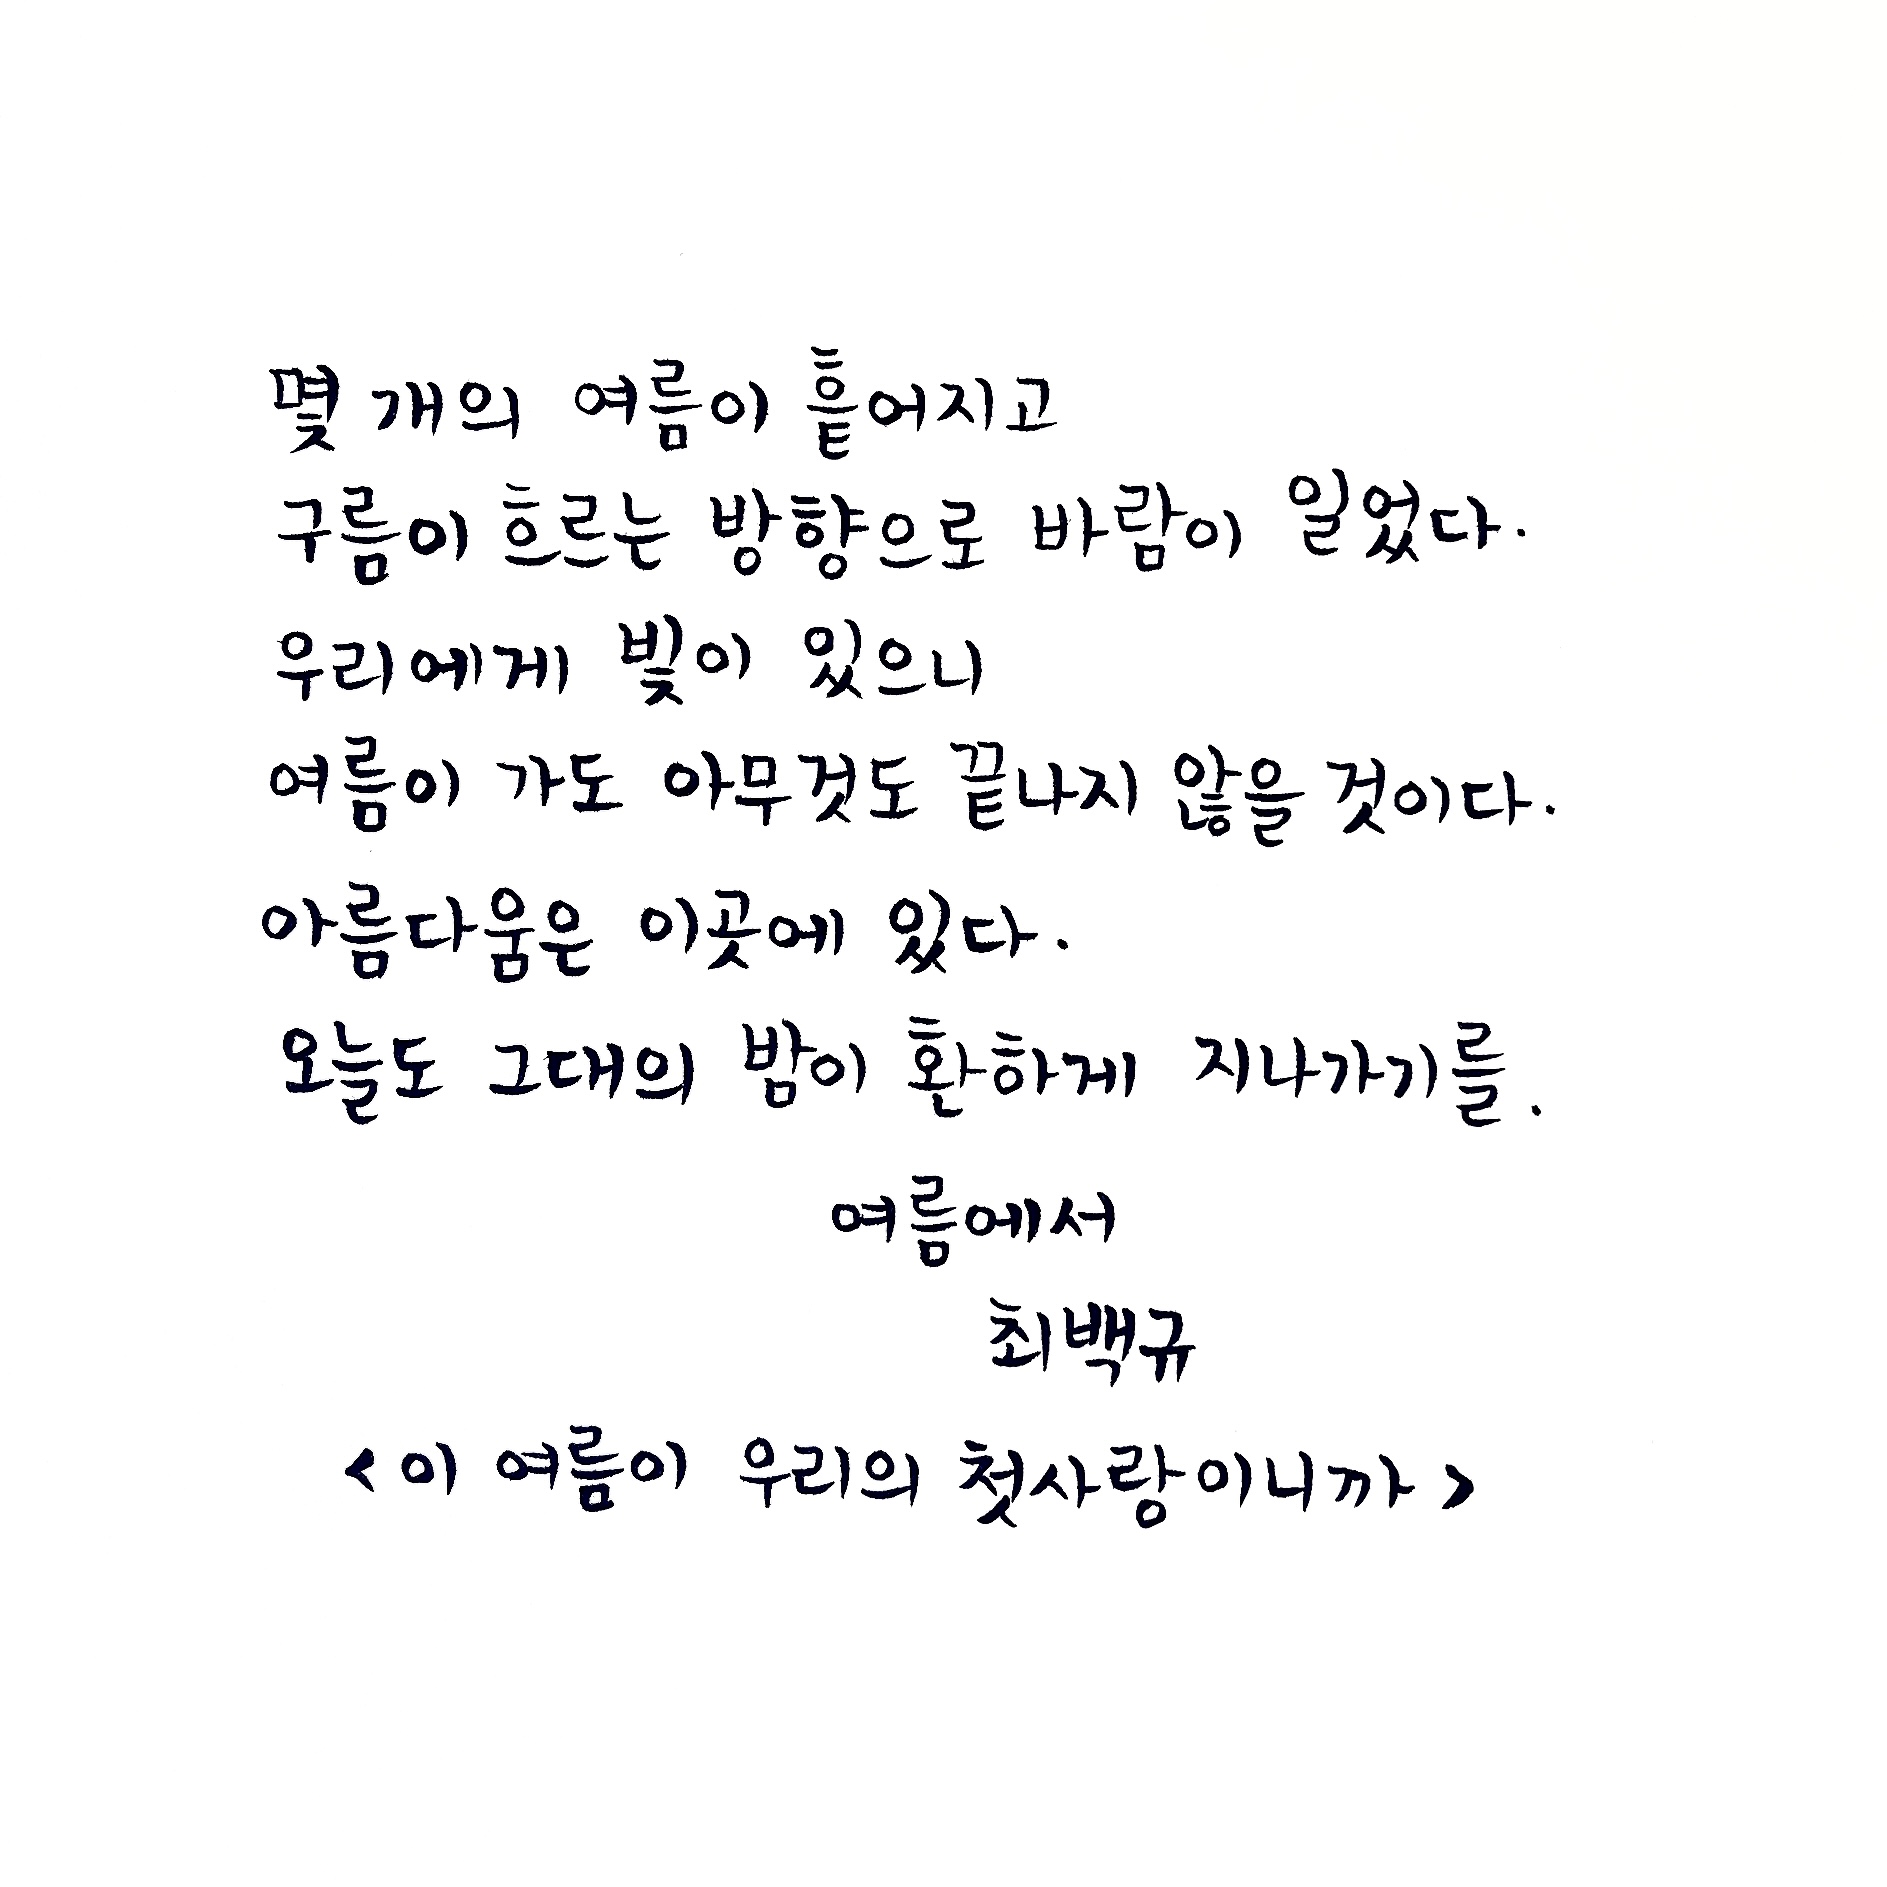 몇 개의 여름이 흩어지고
구름이 흐르는 방향으로 바람이 일었다.
우리에게 빛이 있으니
여름이 가도 아무것도 끝나지 않을 것이다.
아름다움은 이곳에 있다.
오늘도 그대의 밤이 환하게 지나가기를.
여름에서
최백규
<이 여름이 우리의 첫사랑이니까>